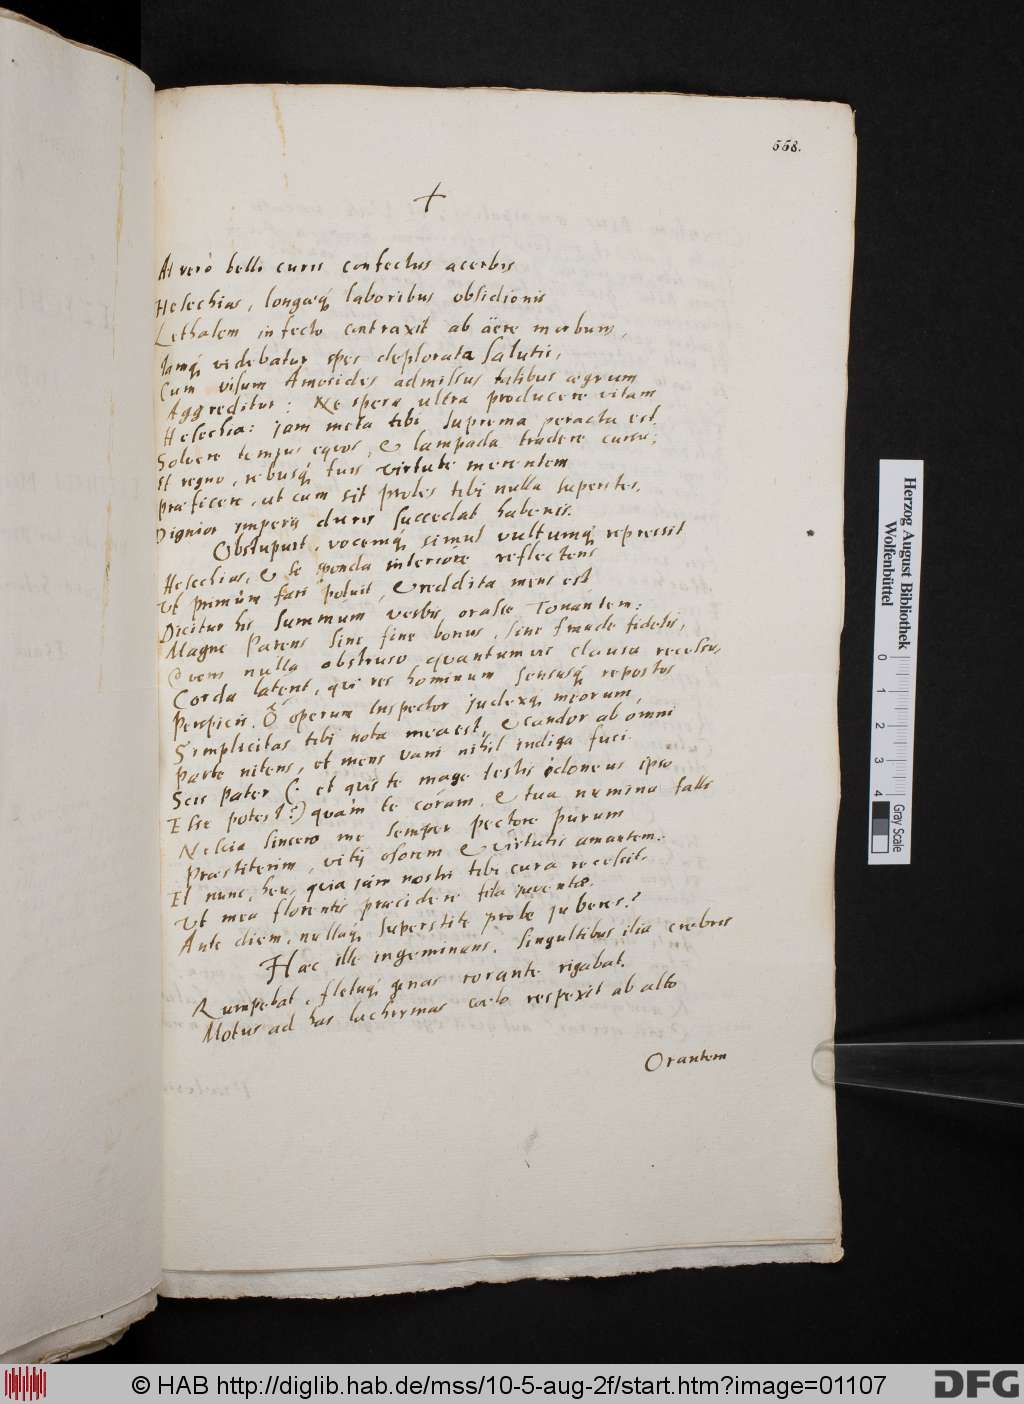 668.
At verò belli curis confectus acerbis
Hesechias, longæq́; laboribus obsidionis
Lethalem infecto contraxit ab äere morbum,
Iamq́; videbatur spes deplorata salutis,
Cum visum Amosides admissus talibus ægrum
Aggreditur: Ne spera ultra producere vitam
Hesechia: jam meta tibi suprema peracta est.
Solvere tempus equos, & lampada tradere cursu;
Et regno, rebusq́; tuis virtute merentem
Præficere, ut cum sit proles tibi nulla superstes,
Dignior imperij duris succedat habenis.
Obstupuit, vocemq́; simul vultumq́; repressit
Hesechias, & se sponda interiore reflectens
Ut primùm fari potuit, & reddita mens est
Dicitur his summum verbis orasse Tonantem:
Magne Parens sine fine bonus, sine fraude fidelis,
Quem nulla obstruso quantumvis clausa recessu,
Corda latent, qui res hominum sensusq́; repostos
Perspicis. Ô operum Inspector judexq́; meorum
Simplicitas tibi nota mea est, & candor ab omni
Parte nitens, et mens vani nihil indiga fuci.
Scis Pater (: et quis te mage testis idoneus ipso
Esse potest :) quàm te córam, & tua numina falli
Nescia sincero me semper pectore purum
Præstiterim, vitij osorem & virtutis amantem.
Et nunc, heu, quia jàm nostri tibi cura recessit,
Ut mea florentis præcidere fila juventæ
Ante diem, nullaq́; superstite prole juberes?
Hæc ille ingeminans, singultibus ilia crebris
Rumpebat, fletuq́; genas rorante rigabat.
Motus ad has lachrymas cælo respexit ab alto
Orantem
Herzog August Bibliothek
Wolfenbüttel
0 1 2 3 4
Gray Scale
© HAB http://diglib.hab.de/mss/10-5-aug-2f/start.htm?image=01107
DFG